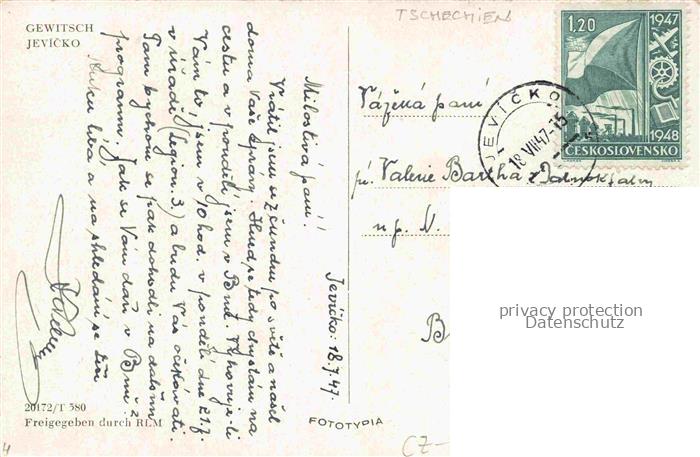 GEWITSCH
JEVÍČKO
TSCHECHIEN
1,20
1947
1948
ČESKOSLOVENSKO
JEVÍČKO
18.VII.47-15
Vážená paní
pí. Valerie Bartha
n.p. N.
B
privacy protection
Datenschutz
Jevíčko: 18.7.47.
Milostivá paní!
Vrátil jsem se z čundru po světe a našel
doma Vaše zprávy. Hned se tedy chystám na
cestu a v pondělí jsem v Brně. Vyhovuje-li
Vám to, jsem v 10 hod. v pondělí dne 21.7.
v úřadě (Legion. 3.) a budu Vás očekávati.
Tam bychom se pak dohodli na dalším
programu. Jak se Vám daří v Brně?
Ruku líbá a na shledání se těší
20172/T 580
Freigegeben durch RLM
FOTOTYPIA
CZ-
4